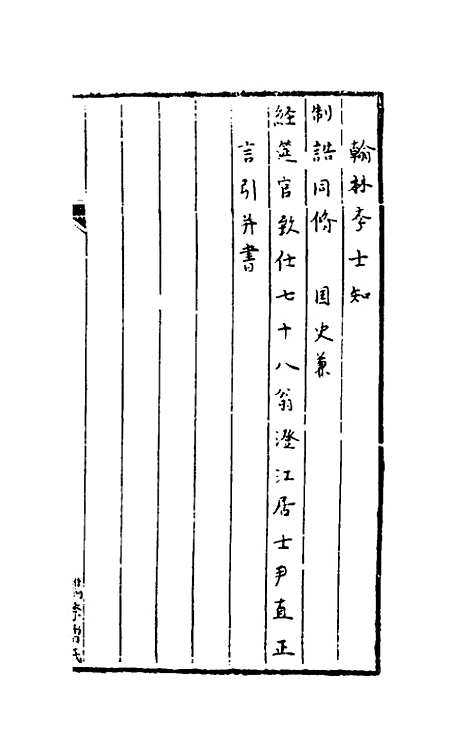 翰林李士知
制誥同脩　国史兼
経筵官致仕七十八翁澄江居士尹直正
言引并書